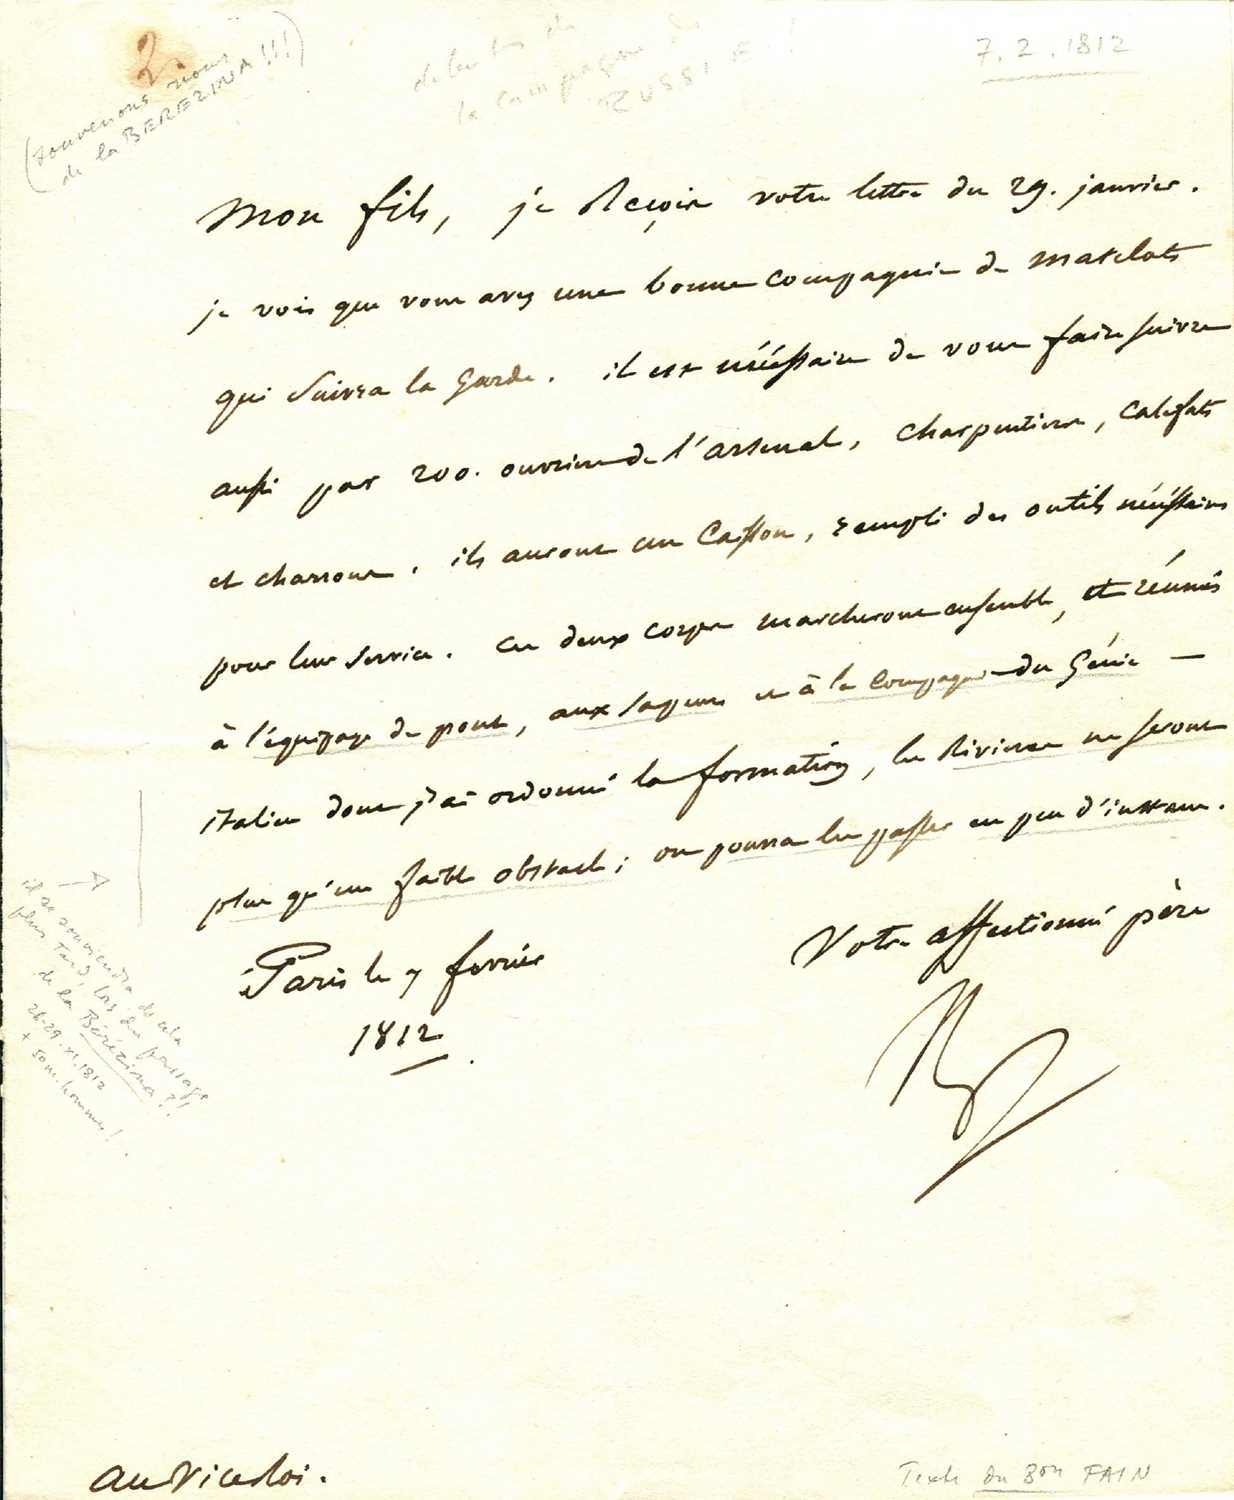 2.
(souvenons nous
de la BEREZINA!!!)
debuts de
la campagne de
RUSSIE!
7.2.1812
Mon fils, je Reçois votre lettre du 29. janvier.
je vois que vous avez une bonne compagnie de matelots
qui suivra la Garde. il est nécéssaire de vous faire suivre
aussi par 200. ouvriers de l'arsenal, charpentiers, calefats
et charrons. ils auront un Caisson, rempli des outils nécéssaires
pour leur service. ces deux corps marcheront ensemble, et réunis
à l'équipage de pont, aux sapeurs et à la Compagnie du Génie —
italien dont j'ai ordonné la formation, les Rivieres ne seront
plus qu'un faible obstacle; on pourra les passer en peu d'instans.
Votre affectionné père
Paris le 7 fevrier
1812
il se souviendra de cela
plus tard, lors du passage
de la Bérézina?!
26-29.XI.1812
+ 50m. hommes!
au Vice Roi.
Texte du Bon FAIN